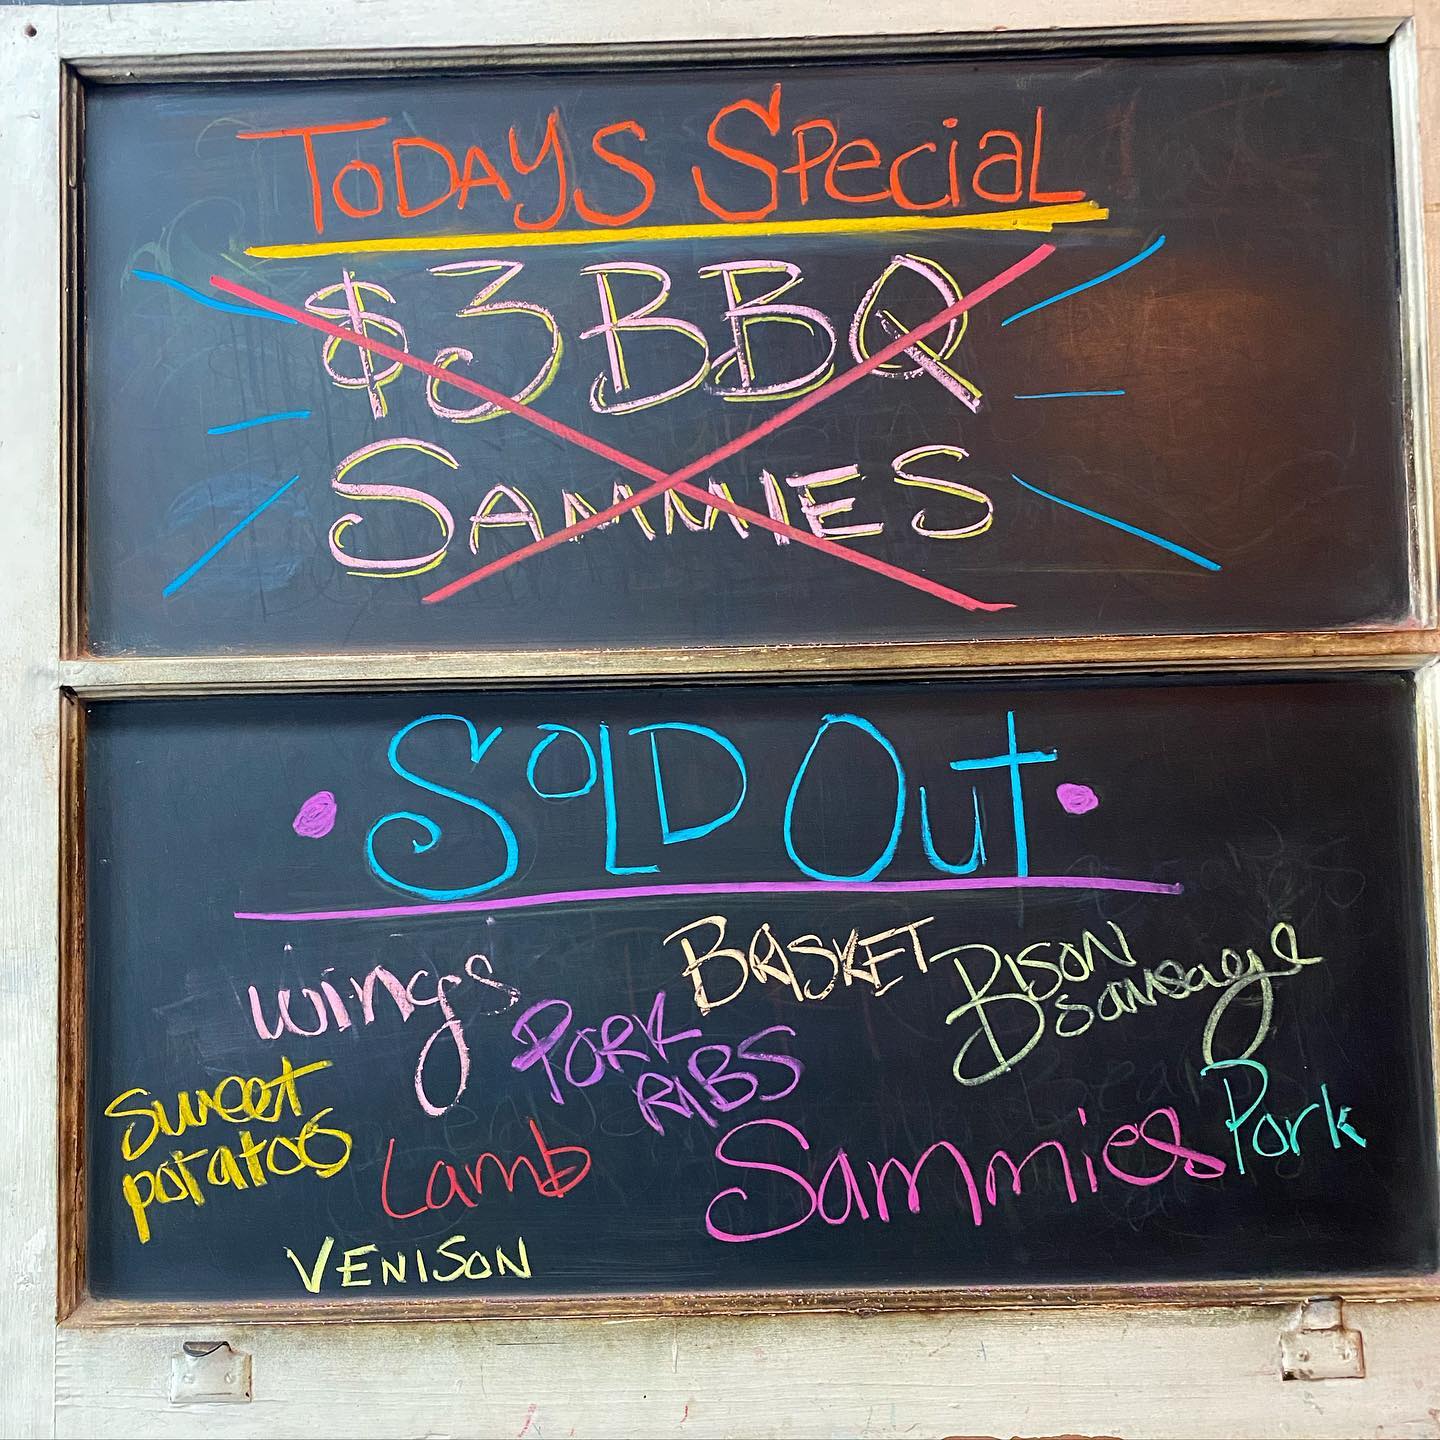 TODAYS SPecial
$3 BBQ
SAMMIES
SOLD OUt
wings
BASKET
BISON
sausage
PORK
RIBS
Sweet
potatos
Lamb
Sammies
Pork
VENISON